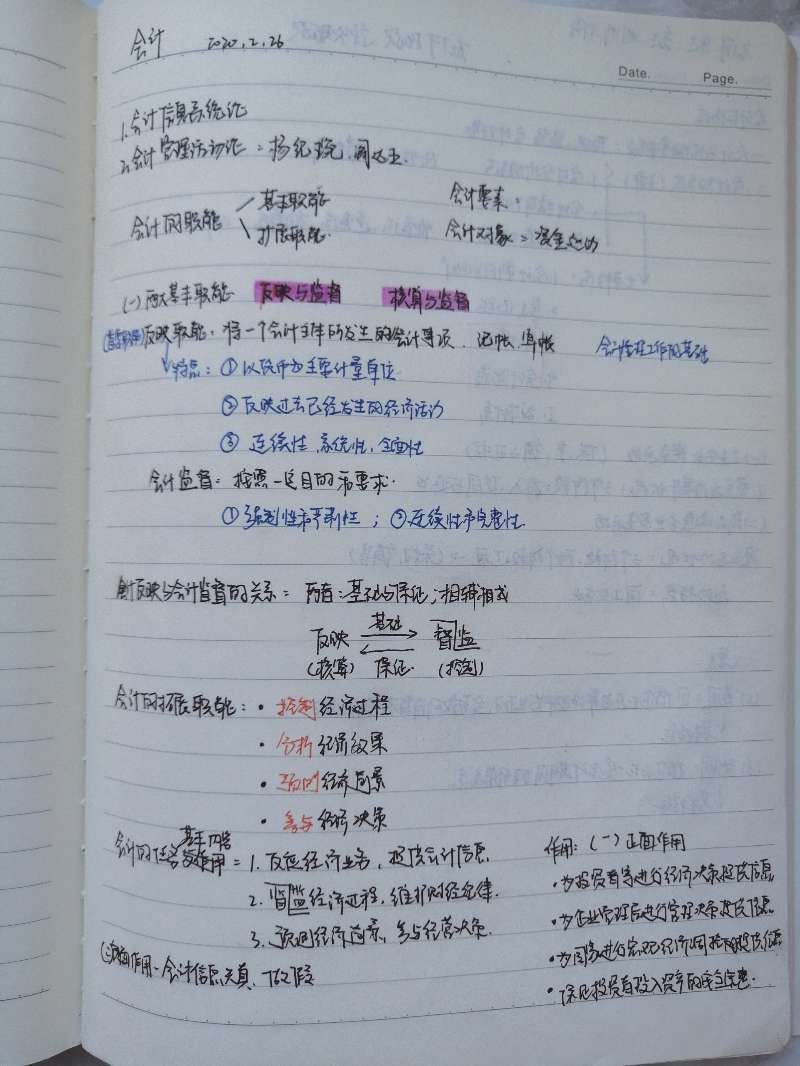 会计 2020.2.26
Date. Page.
1.会计信息系统论
2.会计管理活动论：杨纪琬 阎达五
会计的职能 基本职能 会计要素：
扩展职能 会计对象：资金运动
(一)两大基本职能 反映与监督 核算与监督
反映职能：将一个会计主体所发生的会计事项、记帐、算帐 会计工作的基础
特点：①以货币为主要计量单位
②反映过去已经发生的经济活动
③连续性、系统性、全面性
会计监督：按照一定目的和要求.
①强制性和严肃性；②连续性和完整性
会计反映与会计监督的关系：两者：基础与保证；相辅相成
反映 基础 督监
(核算) 保证 (控制)
会计的拓展职能：• 控制经济过程
• 分析经济效果
• 预测经济前景
• 参与经济决策
会计的任务 基本内容 及作用：1.反应经济业务，提供会计信息. 作用：(一)正面作用
2.监督经济过程，维护财经纪律. •为投资者等进行经济决策提供信息
3.预测经济前景，参与经营决策. •为企业管理层进行管理决策提供信息.
•为国家进行宏观经济调控提供信息
(二)负面作用：会计信息失真、做假 •保证投资者投入资产的安全完整.